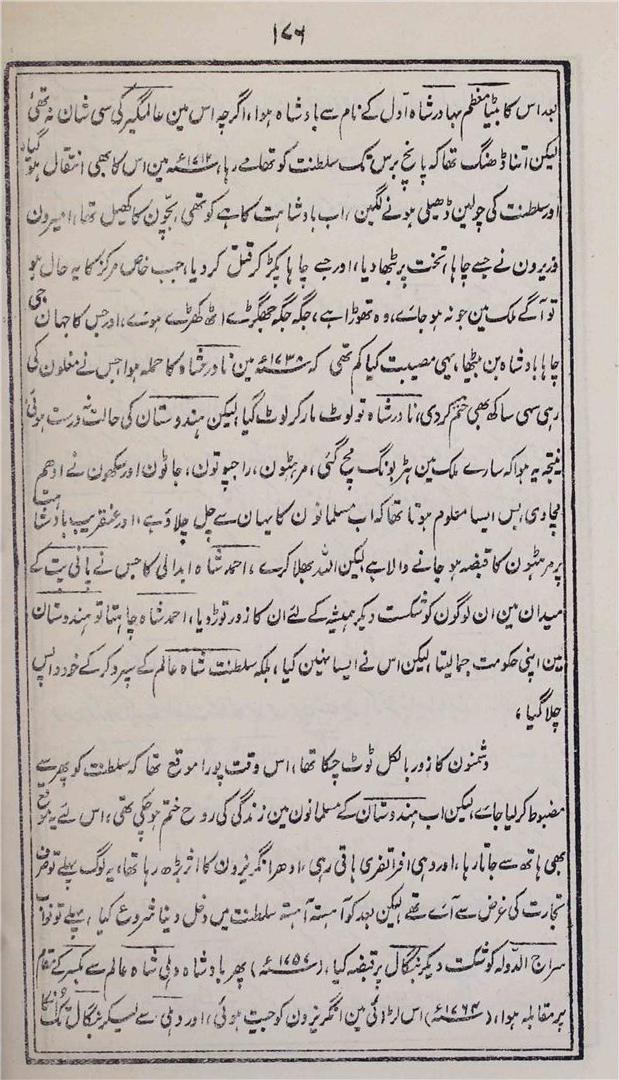 ۱۷۶
بعد اس کا بیٹا معظم بہادر شاہ اول کے نام سے بادشاہ ہوا، اگرچہ اس مین عالمگیر کی سی شان نہ تھی
لیکن اتنا ڈھنگ تھا کہ پانچ برس تک سلطنت کو تھامے رہا، ۱۷۱۲ء مین اس کا بھی انتقال ہو گیا،
اور سلطنت کی چولین ڈھیلی ہونے لگین، اب بادشاہت کاہے کو تھی، بچّون کا کھیل تھا، امیرون
وزیرون نے جسے چاہا، تخت پر بٹھا دیا، اور جسے چاہا پکڑ کر قتل کر دیا، جب خاص مرکز کا یہ حال ہو
تو آگے ملک مین جو نہ ہو جائے، وہ تھوڑا ہے، جگہ جگہ جھگڑے اٹھ کھڑے ہوئے، اور جس کا جہان جی
چاہا بادشاہ بن بیٹھا، یہی مصیبت کیا کم تھی کہ ۱۷۳۸ء مین نادر شاہ کا حملہ ہوا جس نے مغلون کی
رہی سہی ساکھ بھی ختم کر دی، نادر شاہ تو لوٹ مار کر لوٹ گیا، لیکن ہندوستان کی حالت نہ درست ہوئی
نتیجہ یہ ہوا کہ سارے ملک مین ہڑبونگ مچ گئی، مرہٹون، راجپوتون، جاٹون اور سکھون نے اودھم
مچا دی، بس ایسا معلوم ہوتا تھا کہ اب مسلمانون کا یہان سے چل چلاؤ ہے، اور عنقریب بادشاہت
پر مرہٹون کا قبضہ ہو جانے والا ہے لیکن اللہ بھلا کرے، احمد شاہ ابدالی کا جس نے پانی پت کے
میدان مین ان لوگون کو شکست دیکر ہمیشہ کے لئے ان کا زور توڑ دیا، احمد شاہ چاہتا تو ہندوستان
مین اپنی حکومت جما لیتا، لیکن اس نے ایسا نہین کیا، بلکہ سلطنت شاہ عالم کے سپرد کر کے خود واپس
چلا گیا،
دشمنون کا زور بالکل ٹوٹ چکا تھا، اس وقت پورا موقع تھا کہ سلطنت کو پھر سے
مضبوط کر لیا جائے، لیکن اب ہندوستان کے مسلمانون مین زندگی کی روح ختم ہو چکی تھی، اس لئے یہ موقع
بھی ہاتھ سے جاتا رہا، اور وہی افراتفری باقی رہی، ادھر انگریزون کا اثر بڑھ رہا تھا، یہ لوگ پہلے تو صرف
تجارت کی غرض سے آئے تھے لیکن بعد کو آہستہ آہستہ سلطنت میں دخل دینا شروع کیا، پہلے تو نواب
سراج الدولہ کو شکست دیکر بنگال پر قبضہ کیا، (۱۷۵۷ء) پھر بادشاہ دہلی شاہ عالم سے بکسر کے مقام
پر مقابلہ ہوا، (۱۷۶۴ء) اس لڑائی مین انگریزون کو جیت ہوئی، اور دہلی سے لیکر بنگال تک انکا